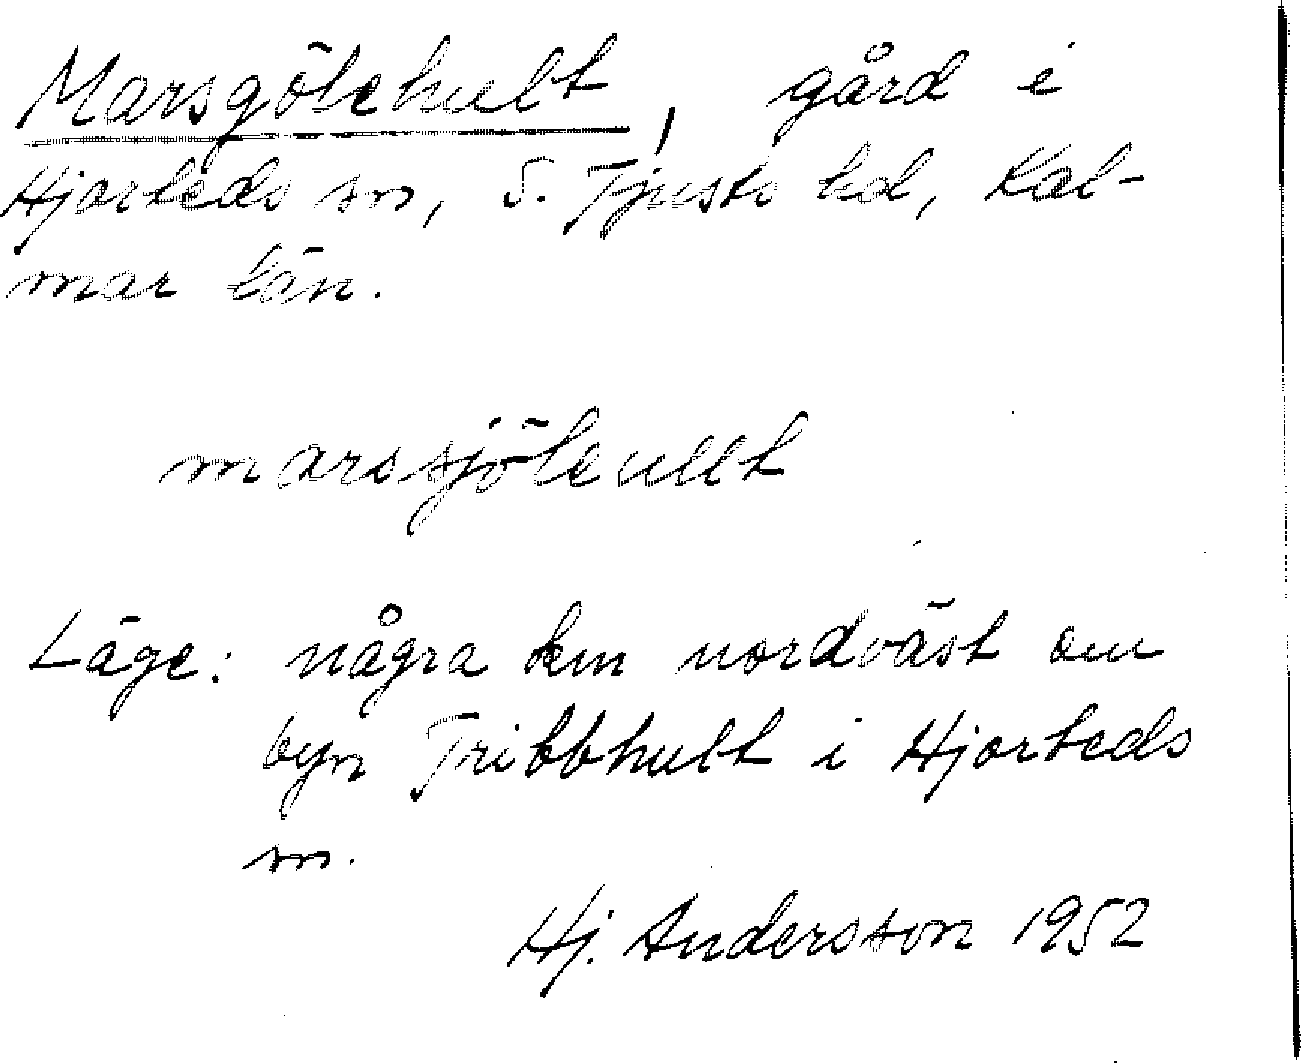 Marsgölehult, gård i
Hjorteds sn, S. Tjusts hd, Kal-
mar län.
marssjöleullt
Läge: några km nordväst om
byn Tribbhult i Hjorteds
sn.
Hj. Andersson 1952